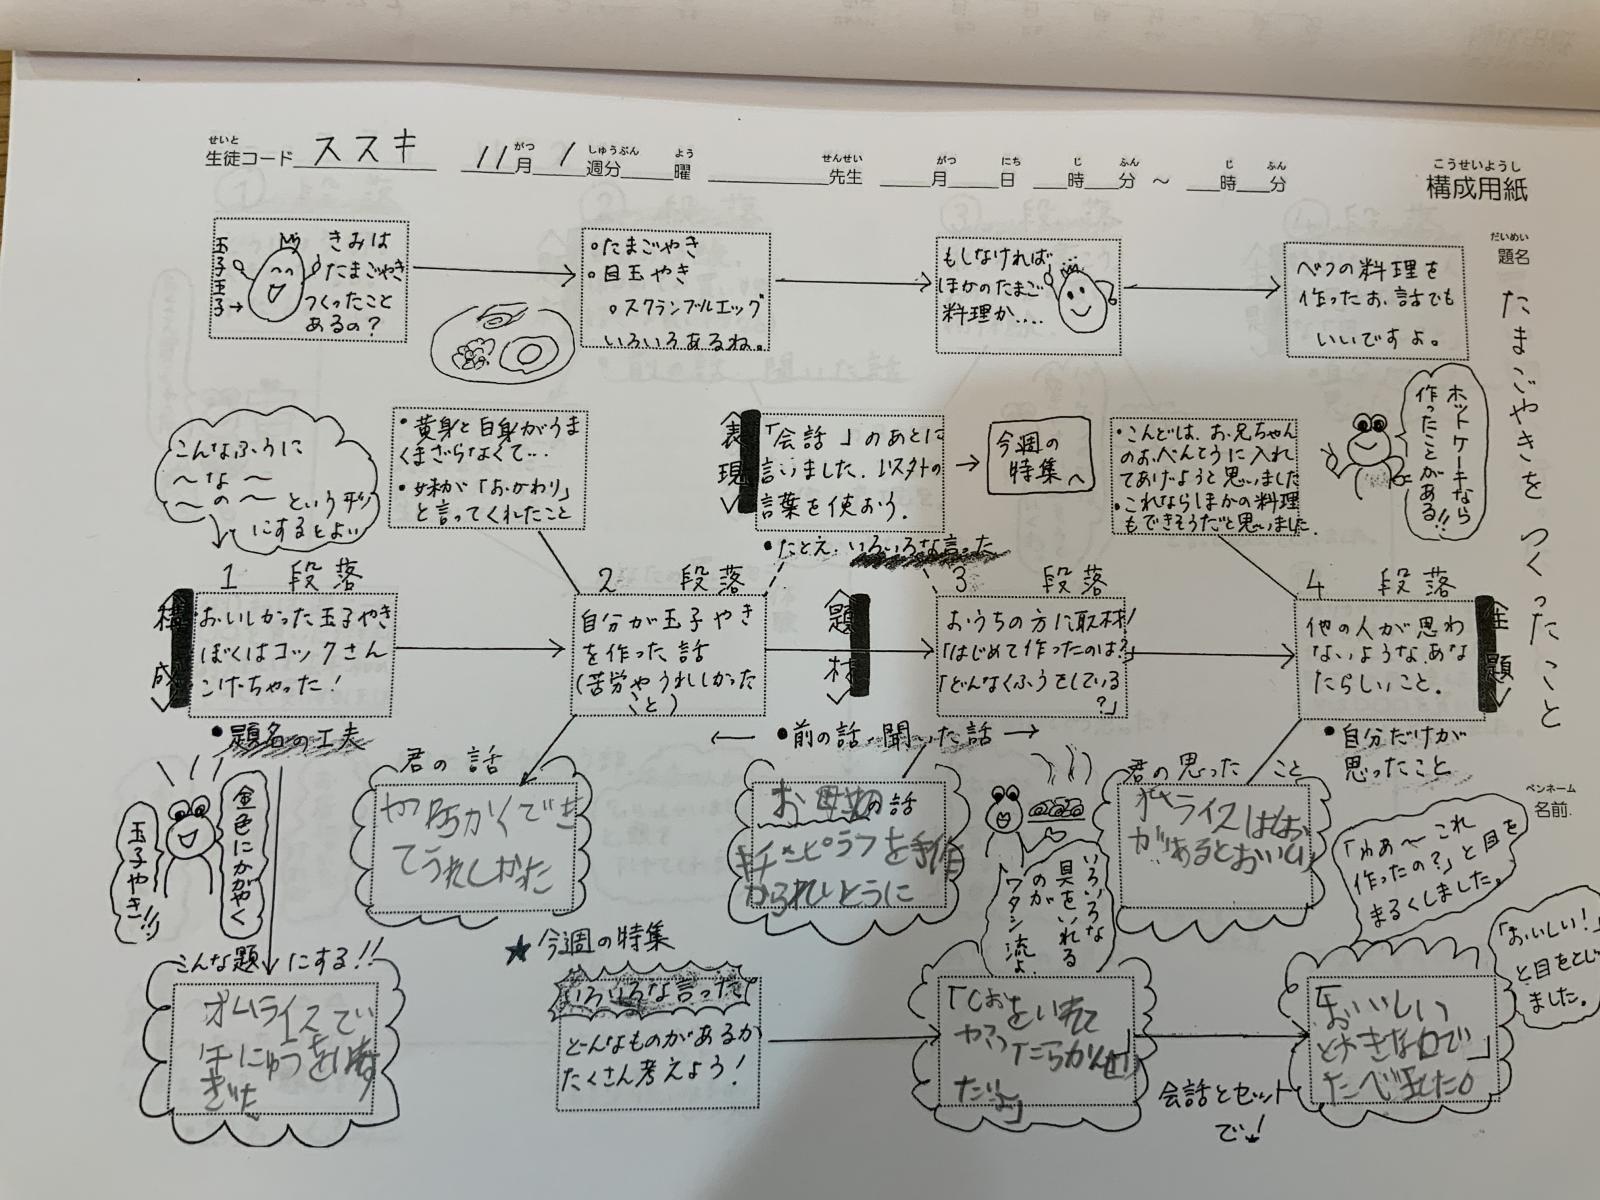 せいと
生徒コード ススキ 11月 1週分 曜 先生 月 日 時 分 ～ 時 分
がつ しゅうぶん よう せんせい がつ にち じ ふん じ ふん
こうせいようし
構成用紙
だいめい
題名
たまごやきを つくったこと
玉子王子→
きみは
たまごやき
つくったこと
あるの？
○たまごやき
○目玉やき
○スクランブルエッグ
いろいろあるね。
もしなければ
ほかのたまご
料理か....
べつの料理を
作ったお話でも
いいですよ。
こんなふうに
〜な〜
〜の〜という形
にするとよい
・黄身と白身がうま
くまざらなくて...
・妹が「おかわり」
と言ってくれたこと
表現
「会話」のあとに
言いました.以外の
言葉を使おう.
今週の
特集へ
・こんどは、お兄ちゃん
のおべんとうに入れ
てあげようと思いました
・これならほかの料理
もできそうだと思いました.
ホットケーキなら
作ったことがある!!
・たとえ.いろいろな言った
1 段落
2 段落
3 段落
4 段落
構成
おいしかった玉子やき
ぼくはコックさん
こげちゃった！
自分が玉子やき
を作った話
(苦労やうれしかった
こと)
題材
おうちの方に取材！
「はじめて作ったのは？」
「どんなくふうをしている
？」
他の人が思わ
ないような、あな
たらしいこと.
主題
・題名の工夫
←・前の話、聞いた話→
・自分だけが
思ったこと
金色にかがやく
玉子やき!!!
君の話
できてうれしかった
お母親の話
ピラフを
れいとうに
いろいろな
具をいれる
のが
ワタシ流よ.
君の思ったこと
ライスは
があるとおいしい
ペンネーム
名前.
「わぁ〜これ
作ったの？」と目を
まるくしました。
「おいしい！」
と目をとじ
ました。
こんな題にする!!
オムライスで
ぎゅうにゅうを
★今週の特集
いろいろな言った
どんなものがあるか
たくさん考えよう！
「しおをいれて
会話とセット
でい！
「おいしい」
と大きな口で
たべました。